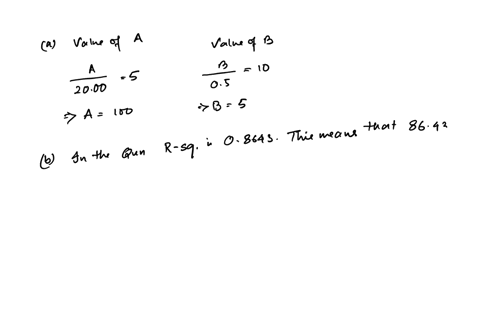 (a) Value of A Value of B
A/20.00 = 5 B/0.5 = 10
=> A = 100 => B = 5
(b) In the Qun R-sq. is 0.8643. This means that 86.42